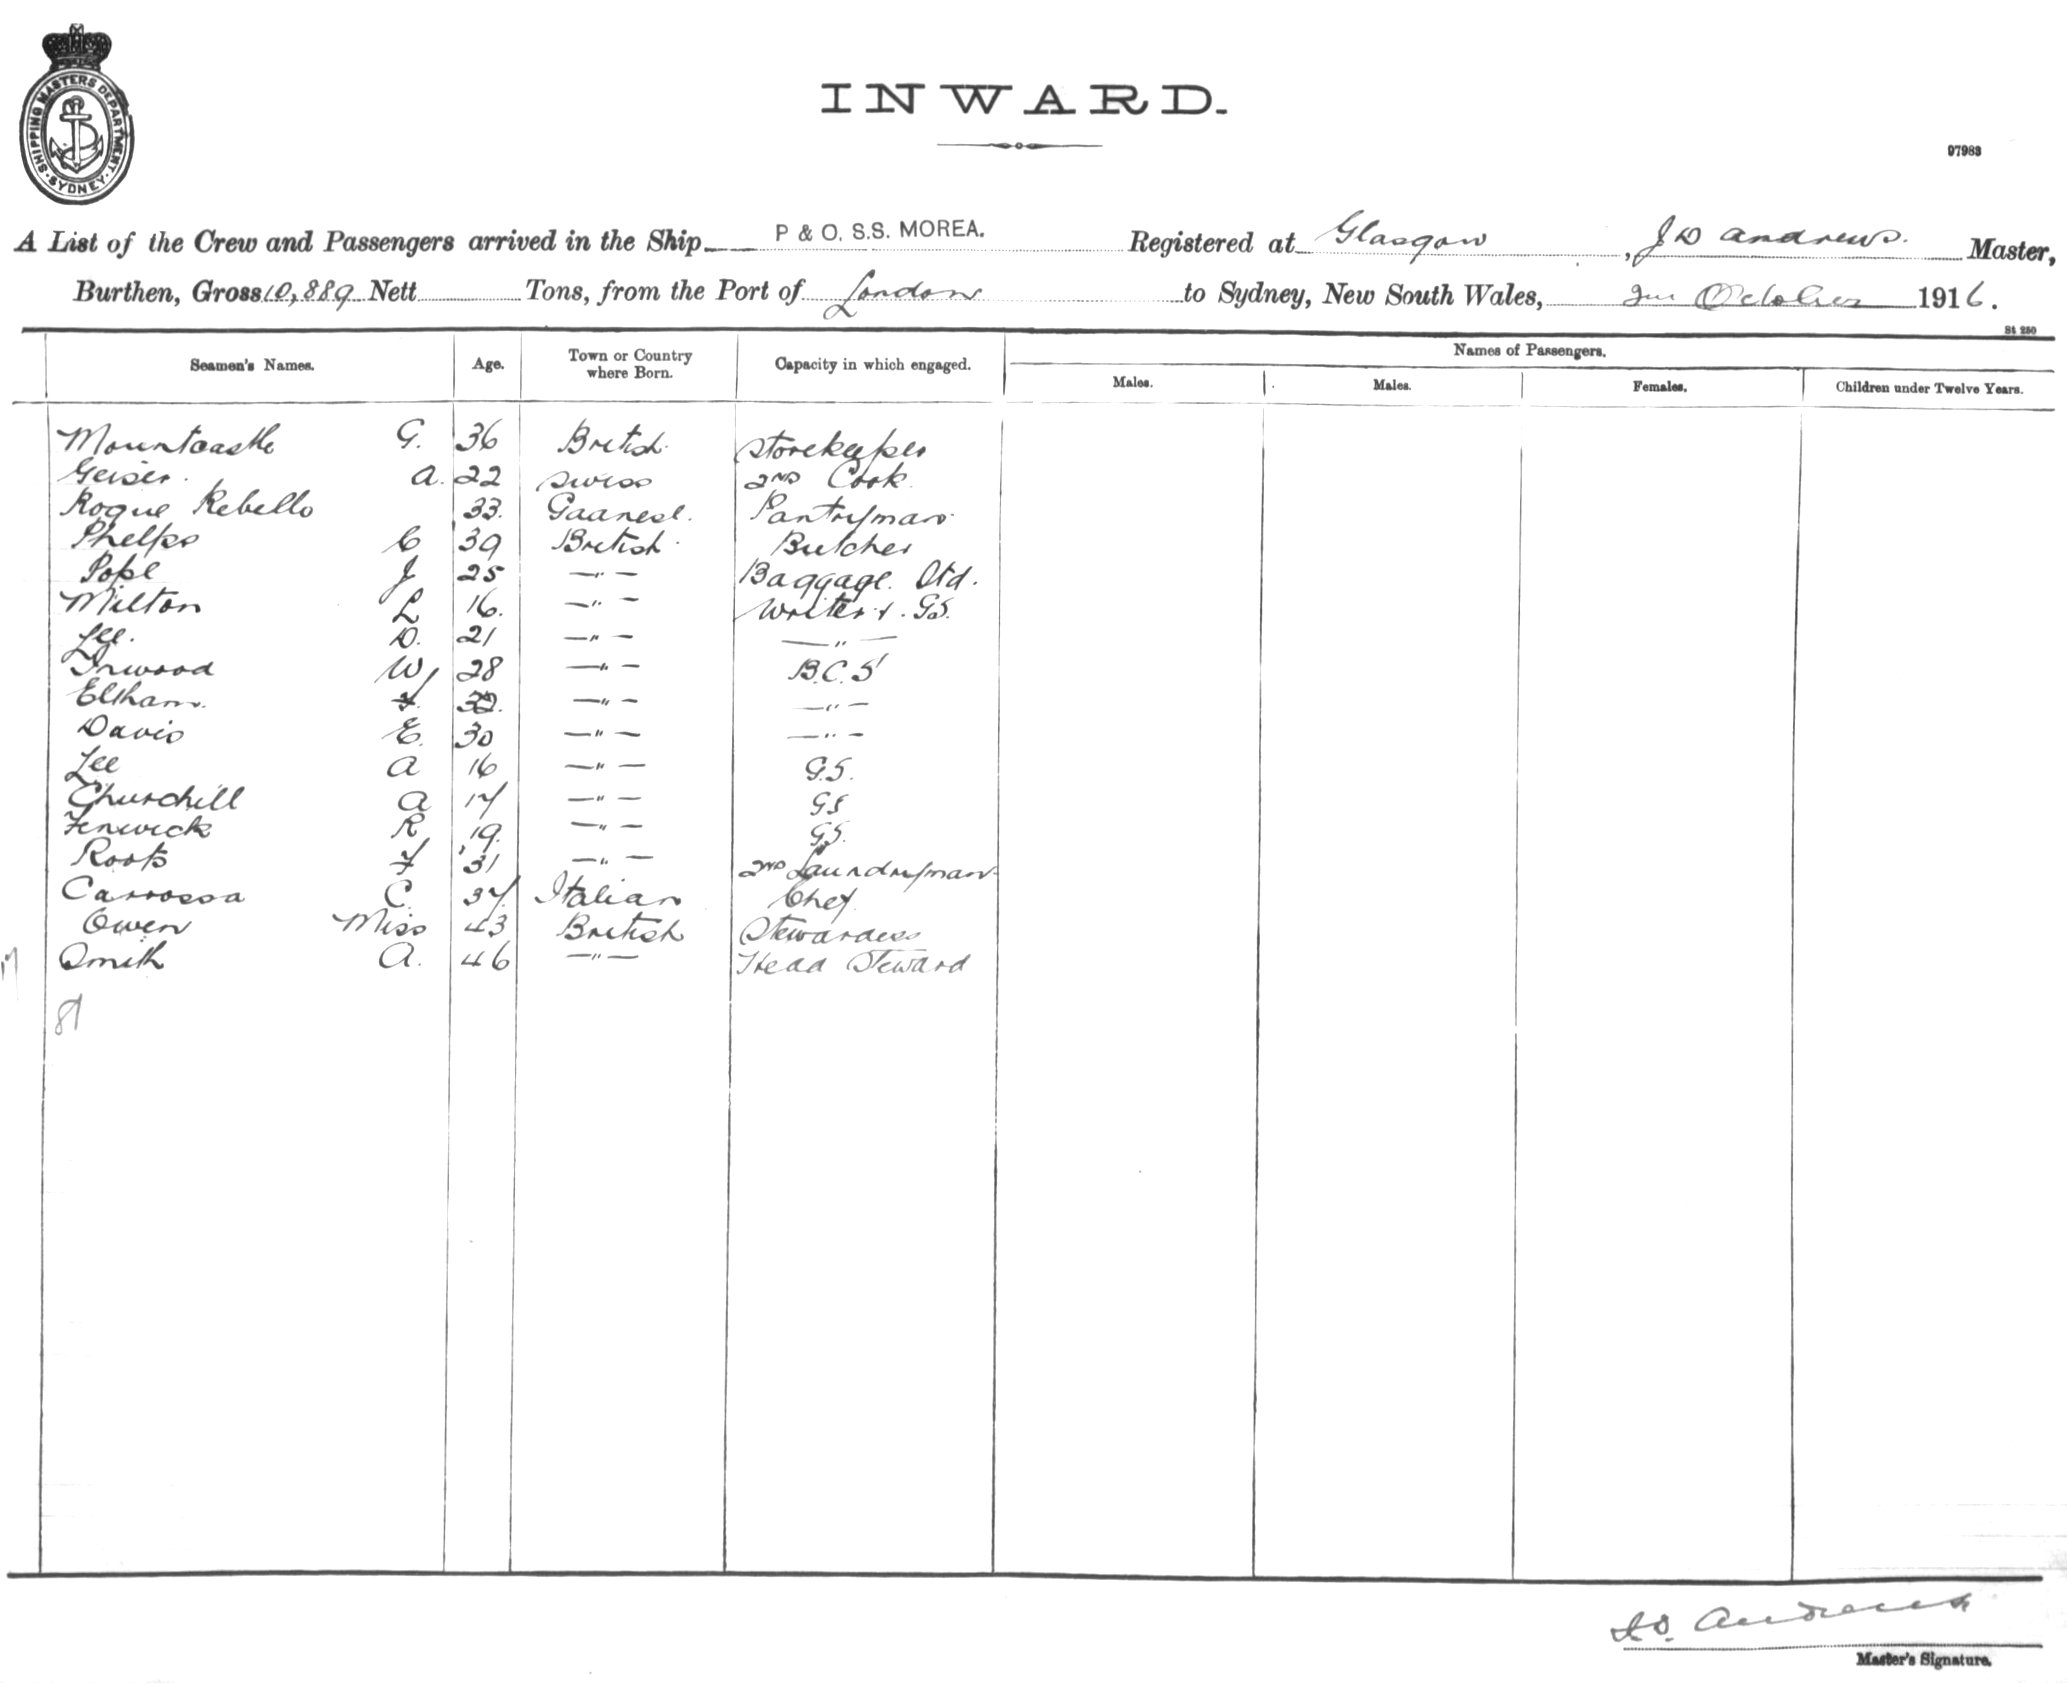 SHIPPING MASTERS DEPARTMENT. SYDNEY.
INWARD.
97983
A List of the Crew and Passengers arrived in the Ship P & O. S.S. MOREA. Registered at Glasgow, J D Andrews. Master,
Burthen, Gross 10,889 Nett Tons, from the Port of London to Sydney, New South Wales, October 1916.
St 250
Seamen's Names. Age. Town or Country where Born. Capacity in which engaged. Names of Passengers.
Males. Males. Females. Children under Twelve Years.
Mountcastle G. 36 British. Storekeeper
Geiser. A. 22 Swiss 2nd Cook.
Roque Rebello 33. Goanese. Pantryman.
Phelps C 39 British. Butcher
Pope J 25 —"— Baggage. Std.
Milton L 16. —"— Writer &. GS.
Lee. D. 21 —"— —"—
Inwood W 28 —"— B.C.S
Eltham. F —"— —"—
Davis E. 30 —"— —"—
Lee A 16 —"— G.S.
Churchill A 17 —"— GS
Fenwick R 19. —"— GS.
Roots F 31 —"— 2nd Laundryman
Carrossa C. 37. Italian Chef
Owen Miss 43 British Stewardess
17 Smith A. 46 —"— Head Steward
81
J D. Andrews
Master's Signature.